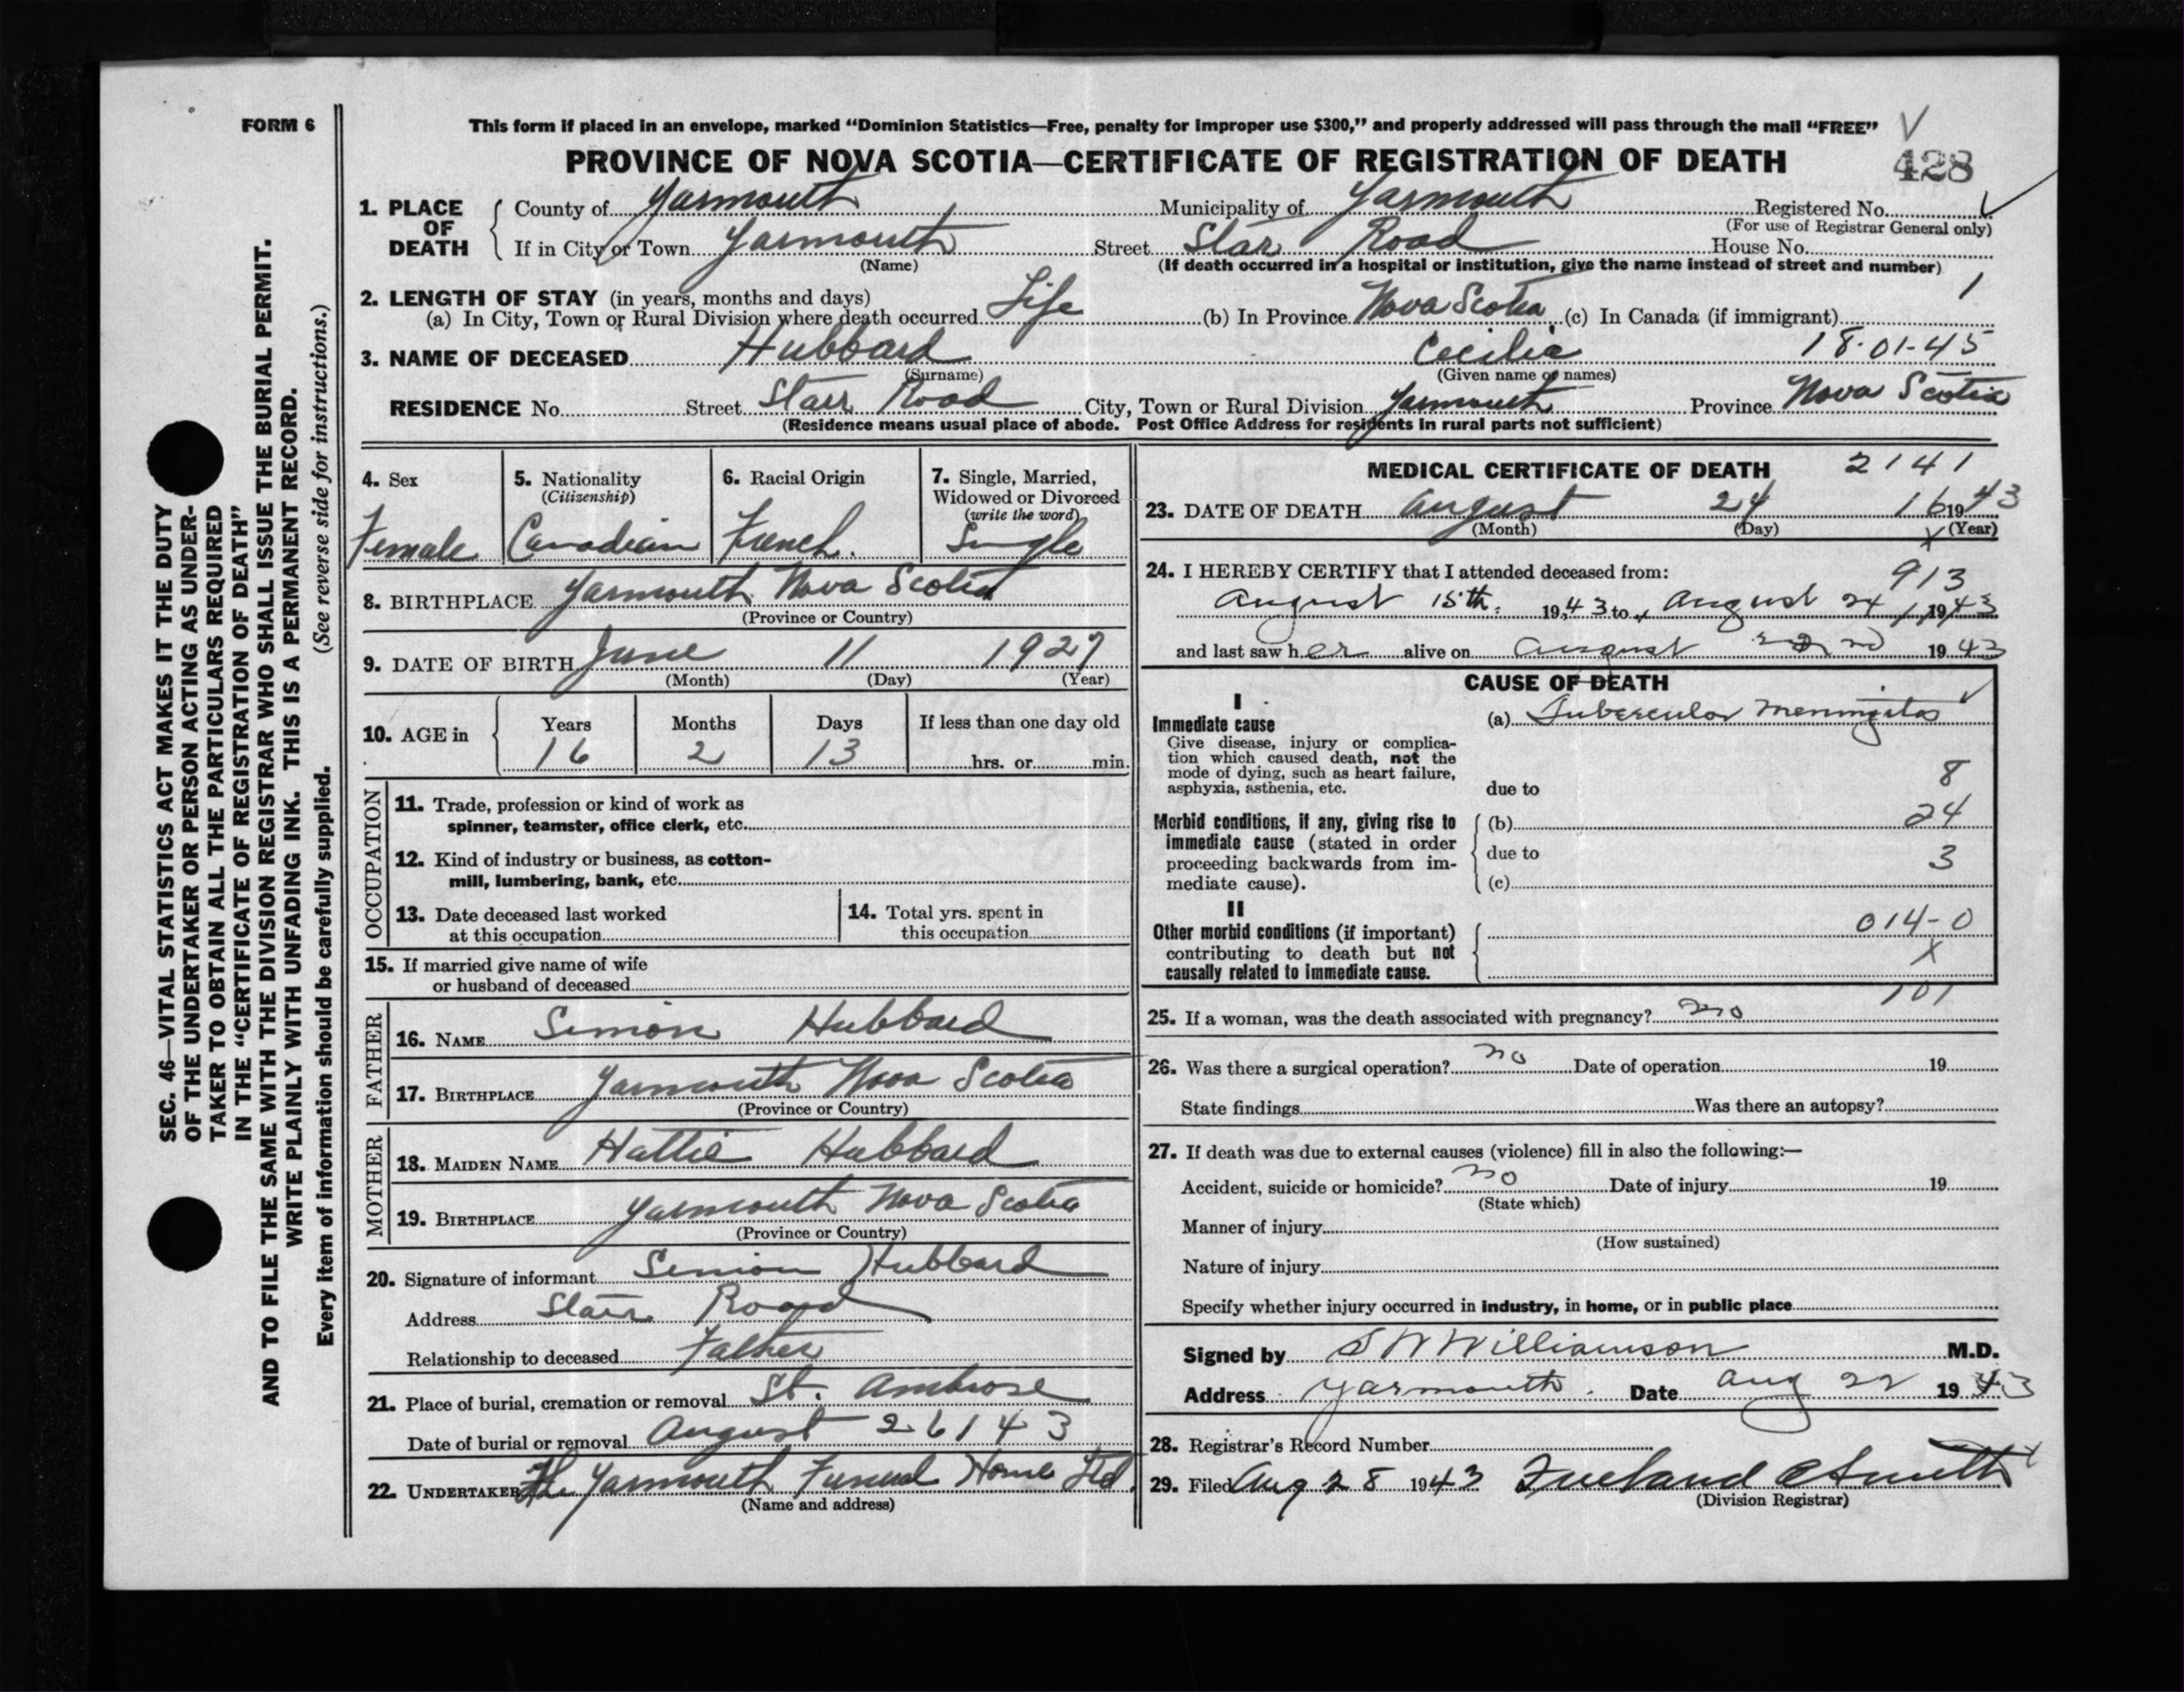 FORM 6
This form if placed in an envelope, marked “Dominion Statistics—Free, penalty for improper use $300,” and properly addressed will pass through the mail “FREE”
PROVINCE OF NOVA SCOTIA—CERTIFICATE OF REGISTRATION OF DEATH
428
SEC. 46—VITAL STATISTICS ACT MAKES IT THE DUTY
OF THE UNDERTAKER OR PERSON ACTING AS UNDER-
TAKER TO OBTAIN ALL THE PARTICULARS REQUIRED
IN THE “CERTIFICATE OF REGISTRATION OF DEATH”
AND TO FILE THE SAME WITH THE DIVISION REGISTRAR WHO SHALL ISSUE THE BURIAL PERMIT.
WRITE PLAINLY WITH UNFADING INK. THIS IS A PERMANENT RECORD.
Every item of information should be carefully supplied. (See reverse side for instructions.)
1. PLACE OF DEATH
County of Yarmouth Municipality of Yarmouth Registered No.
(For use of Registrar General only)
If in City or Town Yarmouth Street Star Road House No.
(Name) (If death occurred in a hospital or institution, give the name instead of street and number)
2. LENGTH OF STAY (in years, months and days) 1
(a) In City, Town or Rural Division where death occurred Life (b) In Province Nova Scotia (c) In Canada (if immigrant)
3. NAME OF DECEASED Hubbard Cecilia 18-01-45
(Surname) (Given name or names)
RESIDENCE No. Street Starr Road City, Town or Rural Division Yarmouth Province Nova Scotia
(Residence means usual place of abode. Post Office Address for residents in rural parts not sufficient)
4. Sex
Female
5. Nationality
(Citizenship)
Canadian
6. Racial Origin
French.
7. Single, Married,
Widowed or Divorced
(write the word)
Single
8. BIRTHPLACE Yarmouth Nova Scotia
(Province or Country)
9. DATE OF BIRTH June 11 1927
(Month) (Day) (Year)
10. AGE in
Years Months Days If less than one day old
16 2 13 hrs. or min.
OCCUPATION
11. Trade, profession or kind of work as
spinner, teamster, office clerk, etc.
12. Kind of industry or business, as cotton-
mill, lumbering, bank, etc.
13. Date deceased last worked
at this occupation
14. Total yrs. spent in
this occupation
15. If married give name of wife
or husband of deceased
FATHER
16. NAME Simon Hubbard
17. BIRTHPLACE Yarmouth Nova Scotia
(Province or Country)
MOTHER
18. MAIDEN NAME Hattie Hubbard
19. BIRTHPLACE Yarmouth Nova Scotia
(Province or Country)
20. Signature of informant Simon Hubbard
Address Starr Road
Relationship to deceased Father
21. Place of burial, cremation or removal St. Ambrose
Date of burial or removal August 26 1943
22. UNDERTAKER The Yarmouth Funeral Home Ltd.
(Name and address)
MEDICAL CERTIFICATE OF DEATH 2141
23. DATE OF DEATH August 24 16 1943
(Month) (Day) (Year)
X
24. I HEREBY CERTIFY that I attended deceased from: 913
August 15th. 1943 to August 24 1943
and last saw her alive on August 1943
CAUSE OF DEATH
I
Immediate cause
Give disease, injury or complica-
tion which caused death, not the
mode of dying, such as heart failure,
asphyxia, asthenia, etc.
(a) Tubercular Meningitis
8
due to
Morbid conditions, if any, giving rise to
immediate cause (stated in order
proceeding backwards from im-
mediate cause).
(b) 24
due to 3
(c)
II
Other morbid conditions (if important)
contributing to death but not
causally related to immediate cause.
014-0
X
101
25. If a woman, was the death associated with pregnancy? no
26. Was there a surgical operation? no Date of operation 19
State findings Was there an autopsy?
27. If death was due to external causes (violence) fill in also the following:—
Accident, suicide or homicide? no Date of injury 19
(State which)
Manner of injury
(How sustained)
Nature of injury
Specify whether injury occurred in industry, in home, or in public place
Signed by S W Williamson M.D.
Address Yarmouth. Date Aug 22 1943
28. Registrar's Record Number
29. Filed Aug 28 1943 Smith
(Division Registrar)